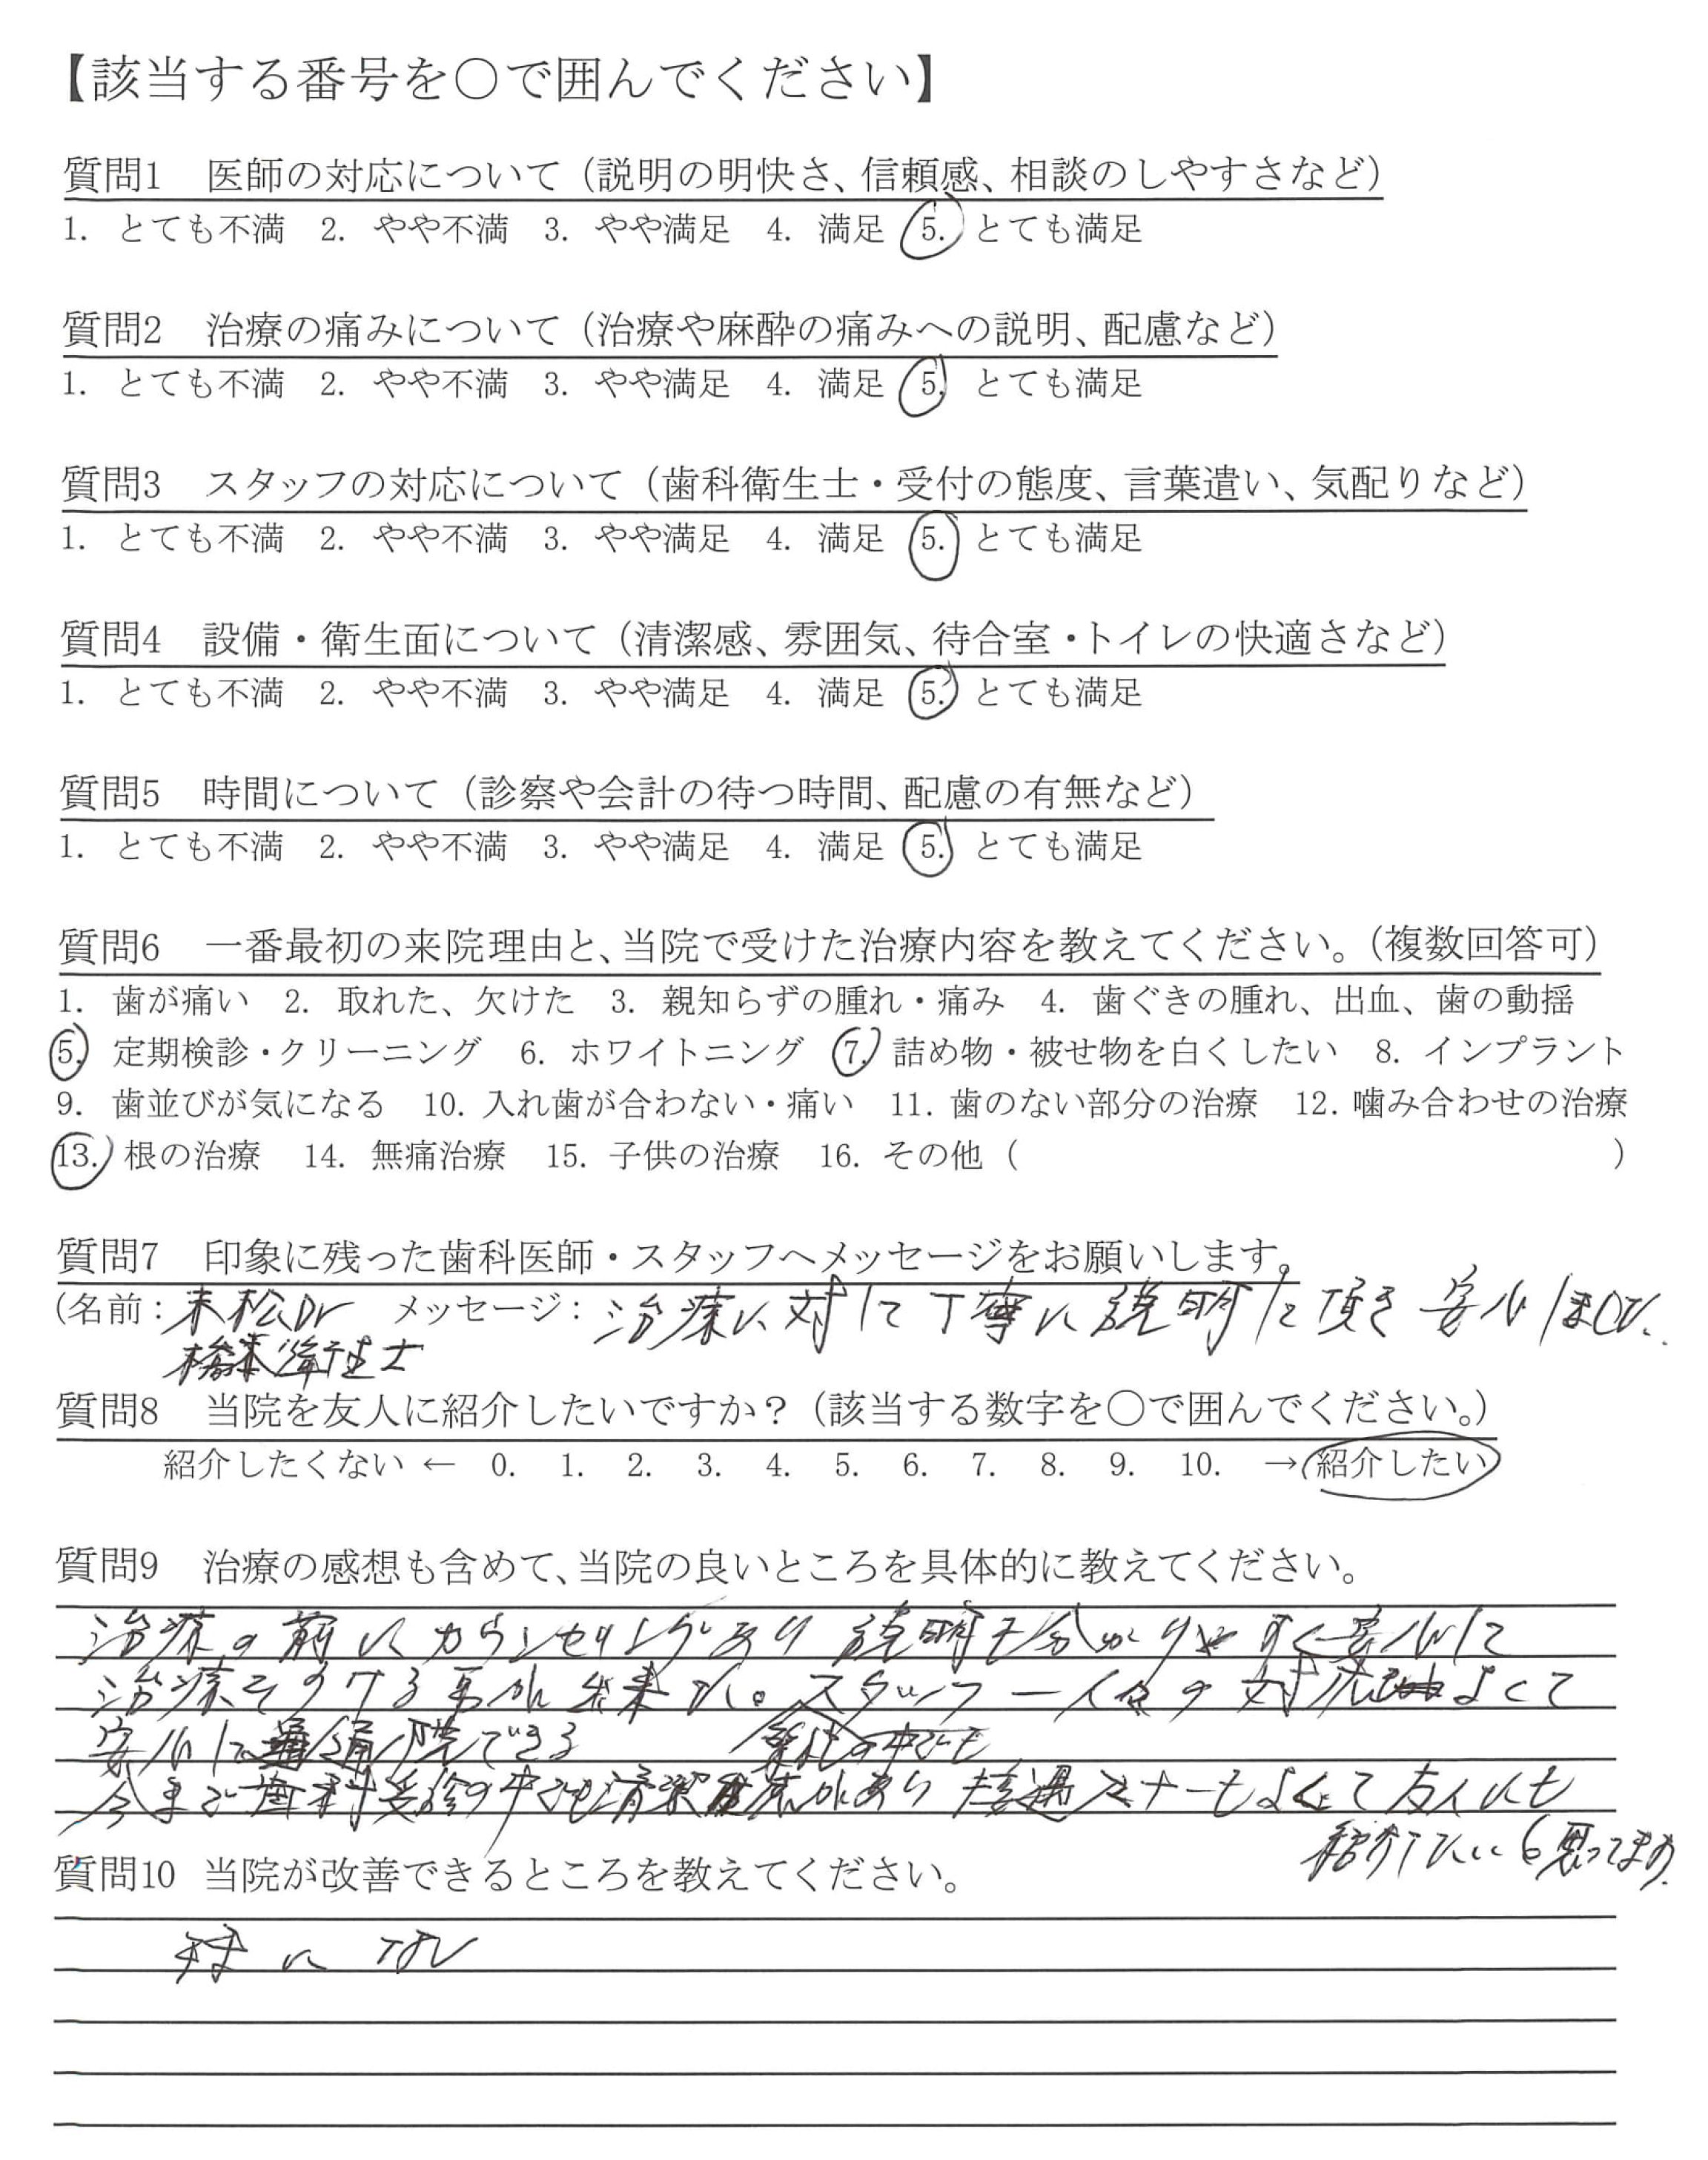 【該当する番号を○で囲んでください】
質問1 医師の対応について（説明の明快さ、信頼感、相談のしやすさなど）
1. とても不満 2. やや不満 3. やや満足 4. 満足 5. とても満足
質問2 治療の痛みについて（治療や麻酔の痛みへの説明、配慮など）
1. とても不満 2. やや不満 3. やや満足 4. 満足 5. とても満足
質問3 スタッフの対応について（歯科衛生士・受付の態度、言葉遣い、気配りなど）
1. とても不満 2. やや不満 3. やや満足 4. 満足 5. とても満足
質問4 設備・衛生面について（清潔感、雰囲気、待合室・トイレの快適さなど）
1. とても不満 2. やや不満 3. やや満足 4. 満足 5. とても満足
質問5 時間について（診察や会計の待つ時間、配慮の有無など）
1. とても不満 2. やや不満 3. やや満足 4. 満足 5. とても満足
質問6 一番最初の来院理由と、当院で受けた治療内容を教えてください。（複数回答可）
1. 歯が痛い 2. 取れた、欠けた 3. 親知らずの腫れ・痛み 4. 歯ぐきの腫れ、出血、歯の動揺
5. 定期検診・クリーニング 6. ホワイトニング 7. 詰め物・被せ物を白くしたい 8. インプラント
9. 歯並びが気になる 10. 入れ歯が合わない・痛い 11. 歯のない部分の治療 12. 噛み合わせの治療
13. 根の治療 14. 無痛治療 15. 子供の治療 16. その他（ ）
質問7 印象に残った歯科医師・スタッフへメッセージをお願いします。
（名前：末松Dr メッセージ：治療に対して丁寧に説明して頂き安心しました。
衛生士
質問8 当院を友人に紹介したいですか？（該当する数字を○で囲んでください。）
紹介したくない ← 0. 1. 2. 3. 4. 5. 6. 7. 8. 9. 10. → 紹介したい
質問9 治療の感想も含めて、当院の良いところを具体的に教えてください。
治療の前にカウンセリングがあり説明も分かりやすく安心して
治療をうける事が出来た。スタッフ一人々の対応よくて
安心して通院できる
今まで歯科受診の中でも清潔感があり接遇マナーもよくて友人にも
紹介したいと思ってます。
質問10 当院が改善できるところを教えてください。
特になし